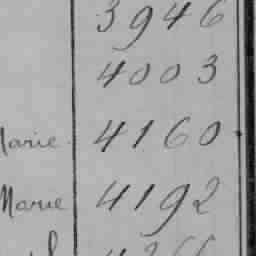 3946
4003
Marie 4160
Marie 4192